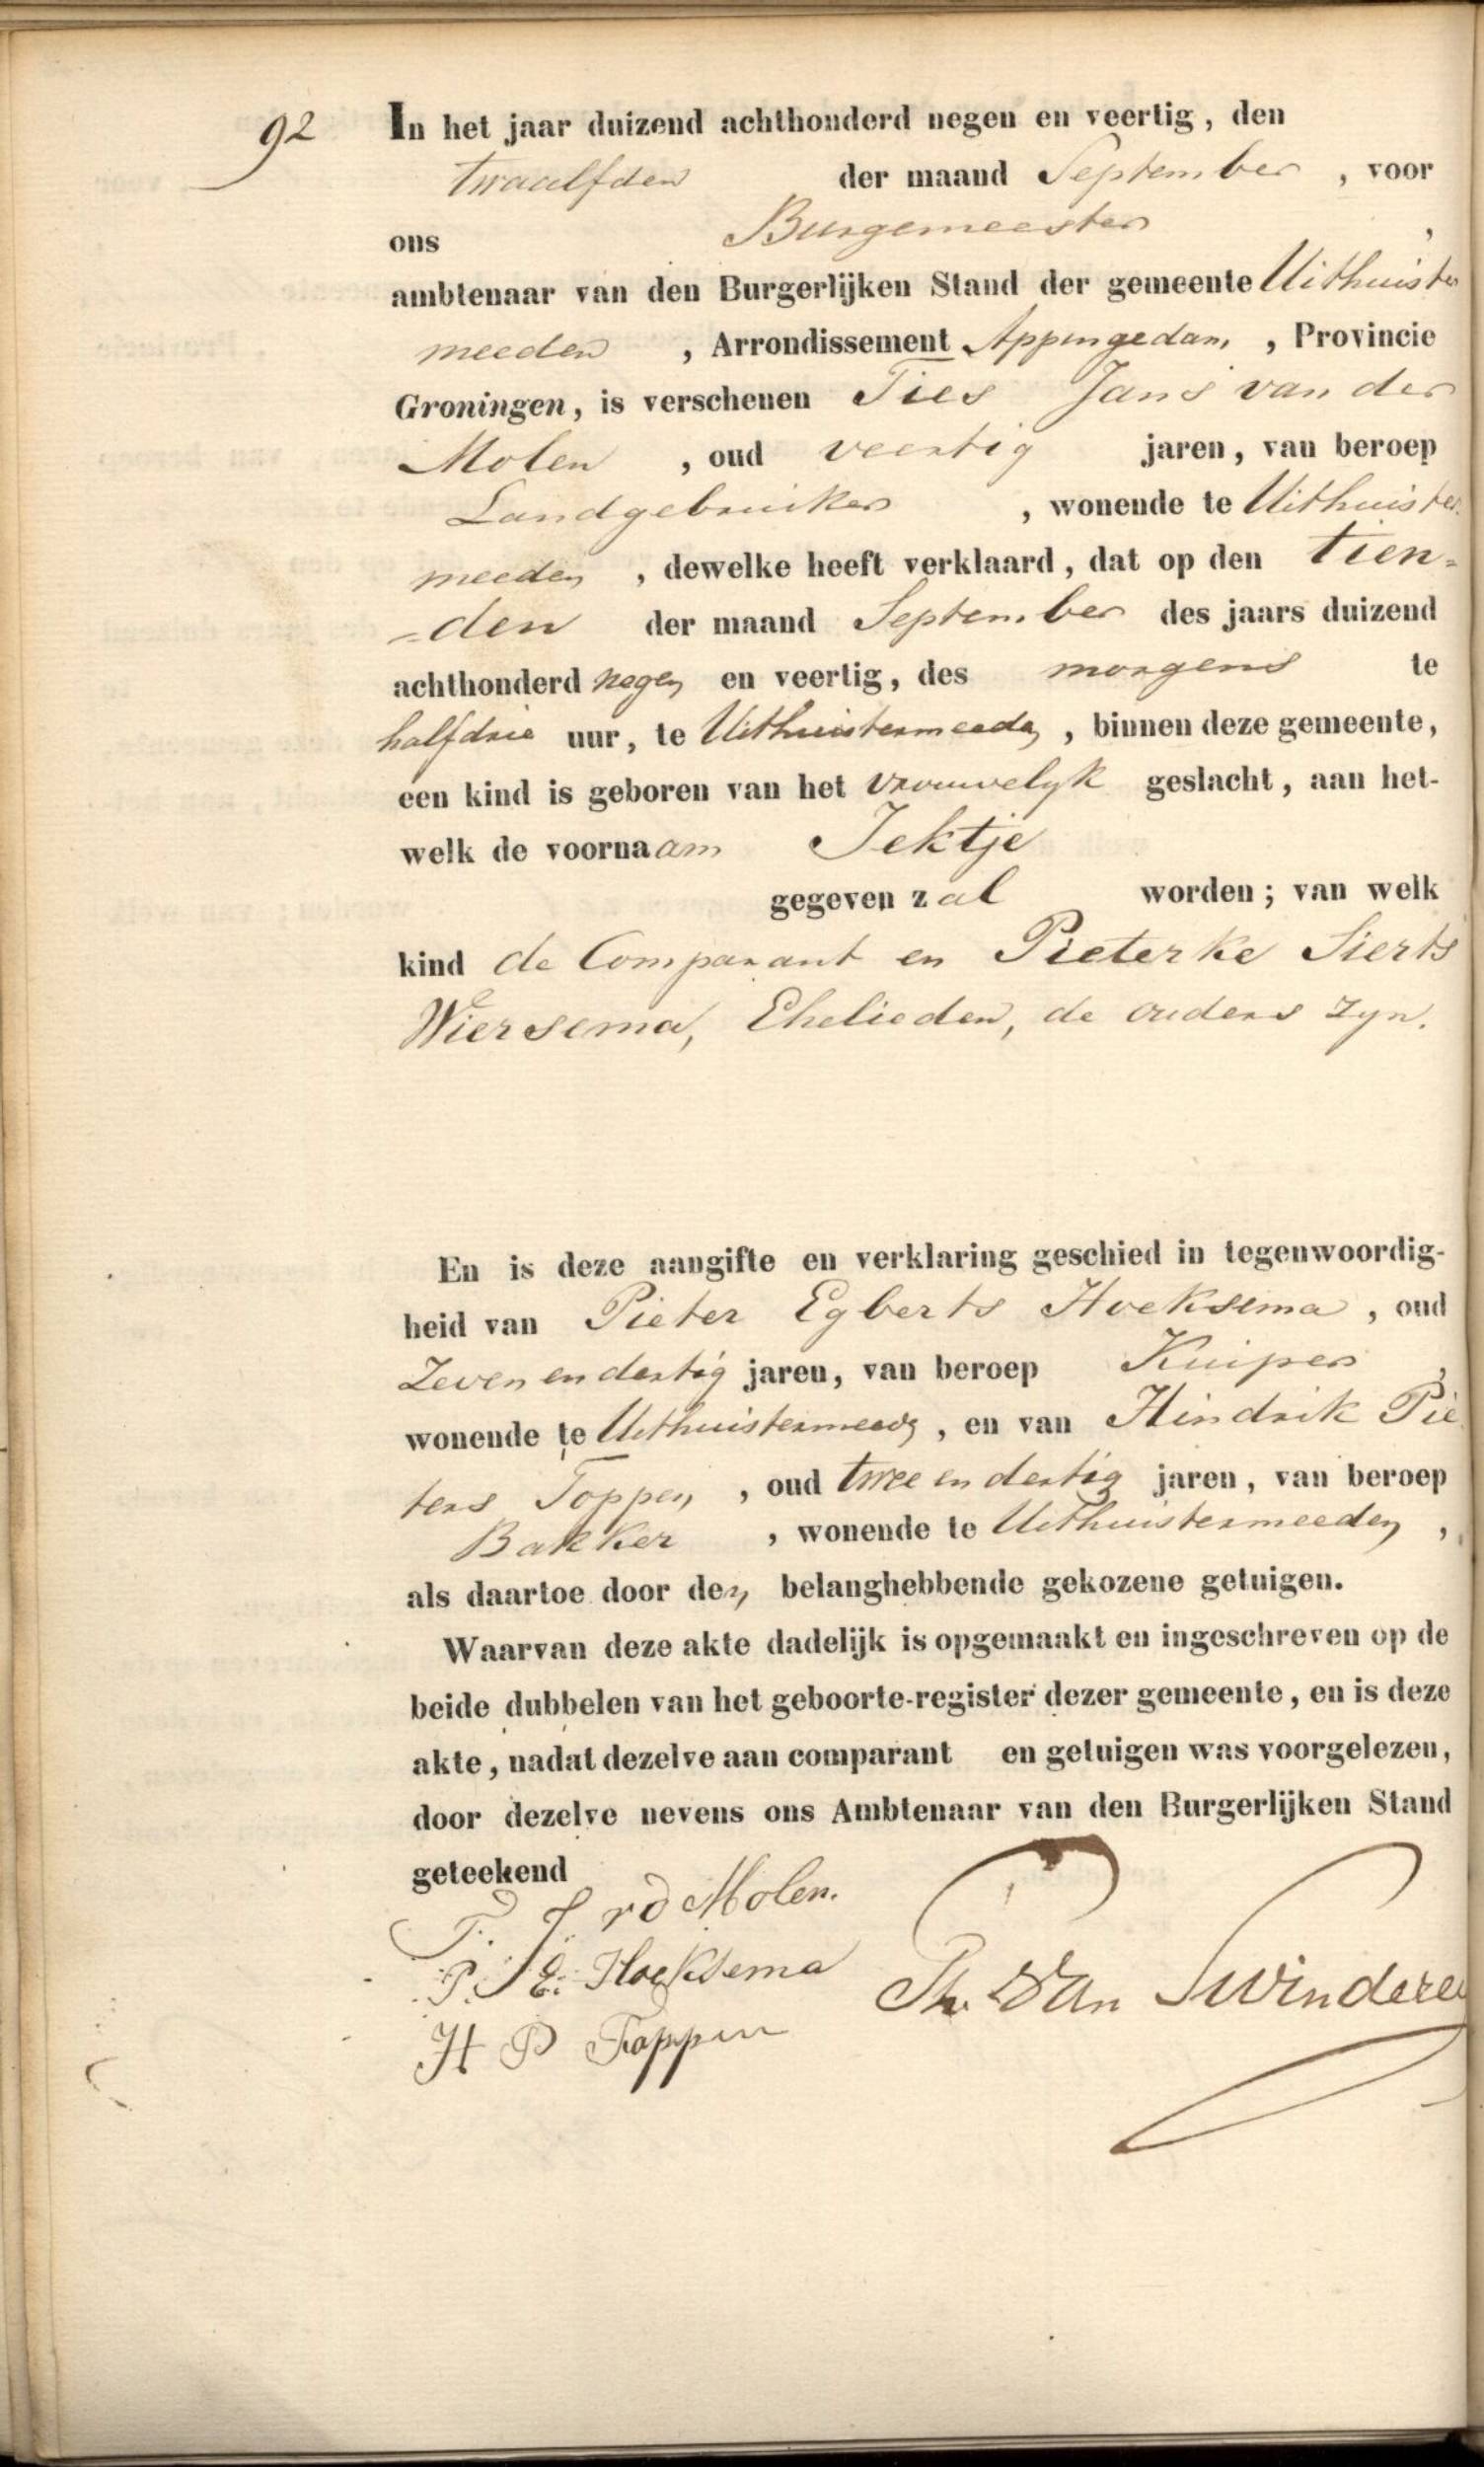 92
In het jaar duizend achthonderd negen en veertig, den
twaalfden der maand September, voor
ons Burgemeester,
ambtenaar van den Burgerlijken Stand der gemeente Uithuister
meeden, Arrondissement Appingedam, Provincie
Groningen, is verschenen Ties Jans van der
Molen, oud veertig jaren, van beroep
Landgebruiker, wonende te Uithuister
meeden, dewelke heeft verklaard, dat op den tien=
=den der maand September des jaars duizend
achthonderd negen en veertig, des morgens te
half drie uur, te Uithuistermeeden, binnen deze gemeente,
een kind is geboren van het vrouwelyk geslacht, aan het-
welk de voornaam Jektje
gegeven zal worden; van welk
kind de Comparant en Pieterke Sierts
Wiersema, Ehelieden, de ouders zyn.
En is deze aangifte en verklaring geschied in tegenwoordig-
heid van Pieter Egberts Hoeksema, oud
Zeven en dertig jaren, van beroep Kuiper,
wonende te Uithuistermeeden, en van Hindrik Pie
ters Toppen, oud twee en dertig jaren, van beroep
Bakker, wonende te Uithuistermeeden,
als daartoe door den belanghebbende gekozene getuigen.
Waarvan deze akte dadelijk is opgemaakt en ingeschreven op de
beide dubbelen van het geboorte-register dezer gemeente, en is deze
akte, nadat dezelve aan comparant en getuigen was voorgelezen,
door dezelve nevens ons Ambtenaar van den Burgerlijken Stand
geteekend
T. J. v d Molen.
P. E. Hoeksema
Th. Van Swinderen
H P Toppen